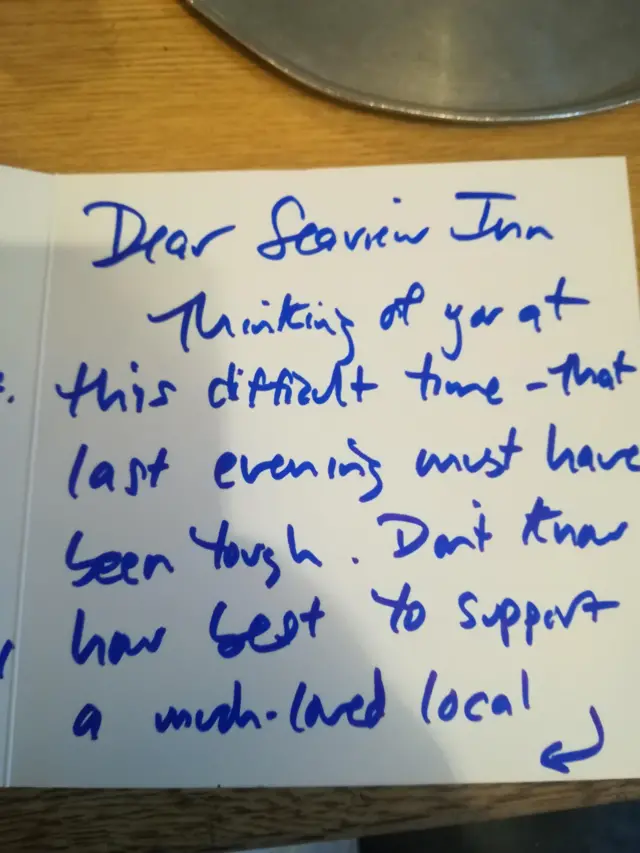 Dear Seaview Inn
Thinking of you at
this difficult time - That
last evening must have
been tough. Don't know
how best to support
a much-loved local